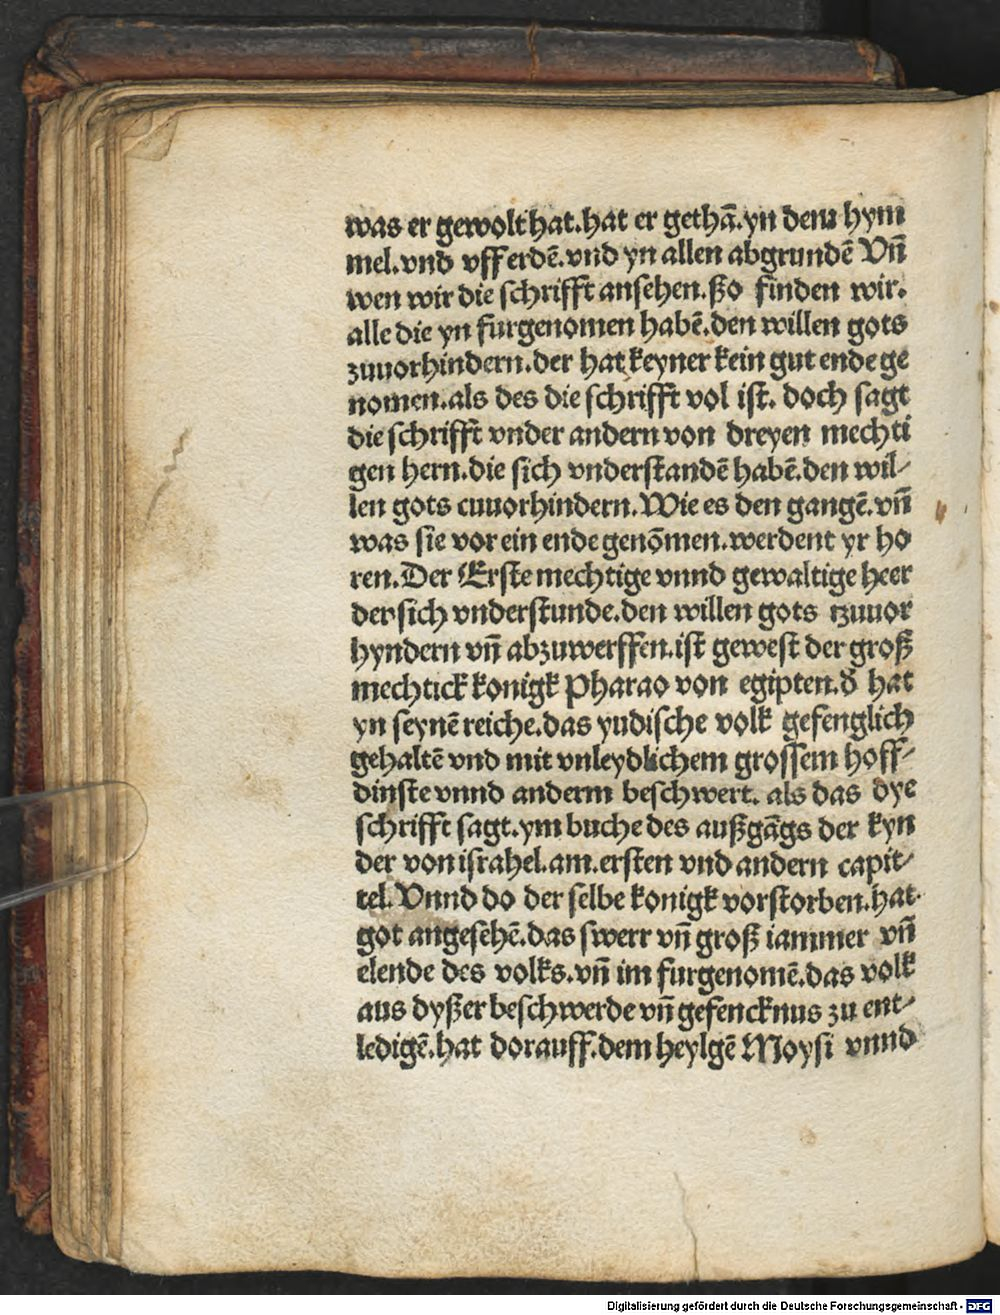 was er gewolt hat. hat er gethā. yn dem hym
mel. vnd vff erdē. vnd yn allen abgrundē Vn̄
wen wir die schrifft ansehen. ßo finden wir.
alle die yn furgenomen habē. den willen gots
zuuorhindern. der hat keyner kein gut ende ge
nomen. als des die schrifft vol ist. doch sagt
die schrifft vnder andern von dreyen mechti
gen hern. die sich vnderstandē habē. den wil⸗
len gots cuuorhindern. Wie es den gangē. vn̄
was sie vor ein ende genōmen. werdent yr ho
ren. Der Erste mechtige vnnd gewaltige heer
der sich vnderstunde. den willen gots tzuuor
hyndern vn̄ abzuwerffen. ist gewest der groß
mechtick konigk Pharao von egipten. d̄ hat
yn seynē reiche. das yudische volk gefenglich
gehaltē vnd mit vnleydlichem grossem hoff⸗
dinste vnnd anderm beschwert. als das dye
schrifft sagt. ym buche des außgāgs der kyn
der von israhel. am. ersten vnd andern capit⸗
tel. Vnnd do der selbe konigk vorstorben. hat
got angesehē. das swerr vn̄ groß iammer vn̄
elende des volks. vn̄ im furgenomē. das volk
aus dyßer beschwerde vn̄ gefencknus zu ent⸗
ledigē. hat dorauff. dem heylgē Moysi vnnd
Digitalisierung gefördert durch die Deutsche Forschungsgemeinschaft - DFG